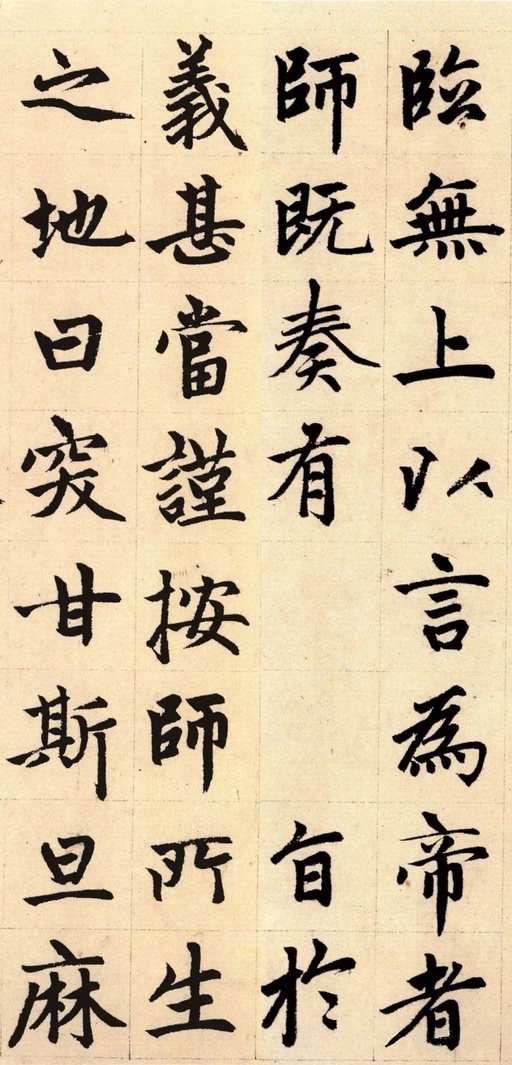 臨無上以言為帝者
師既奏有 旨於
義甚當謹按師所生
之地曰突甘斯旦麻